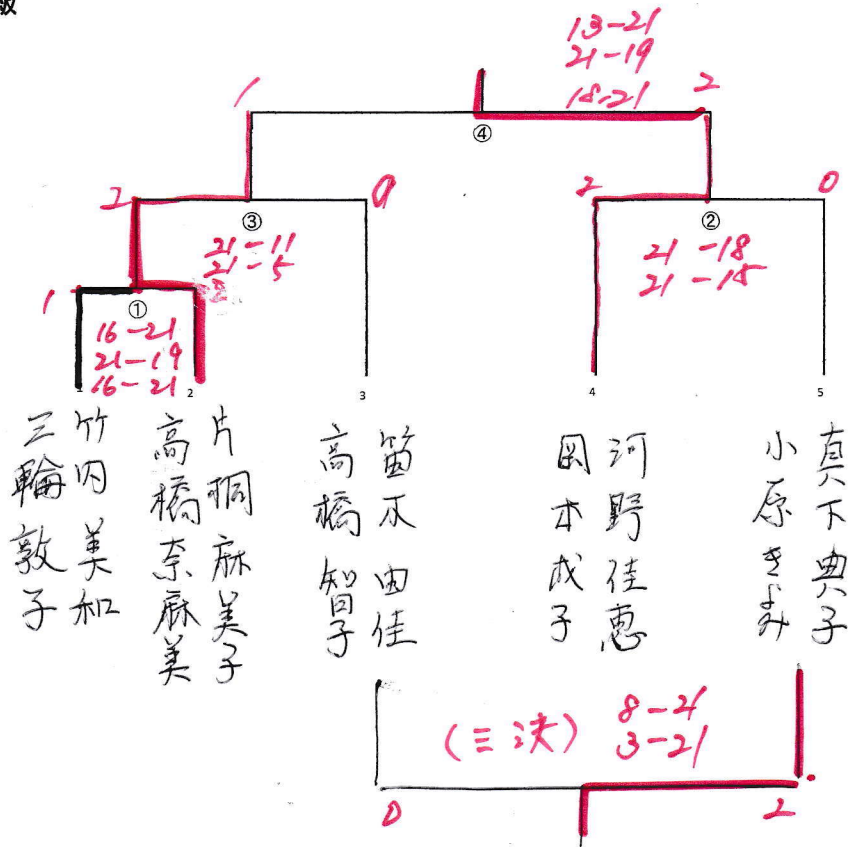 13-21
21-19
18-21
1
2
④
2
0
2
0
③
②
21-11
21-5
21-18
21-15
1
2
①
16-21
21-19
16-21
2
3
4
5
竹内美和
三輪敦子
片桐麻美子
高橋奈麻美
笛木由佳
高橋智子
河野佳恵
岡本成子
真下典子
小原きよみ
(三決)
8-21
3-21
0
2